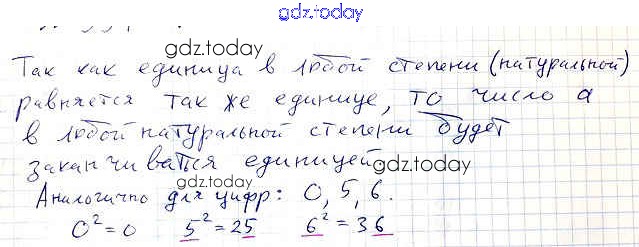 gdz.today
gdz.today
Так как единица в любой степени (натуральной)
равняется так же единице, то число а
в любой натуральной степени будет
заканчиваться единицей
gdz.today
Аналогично для цифр: 0, 5, 6.
gdz.today
0² = 0 5² = 25 6² = 36